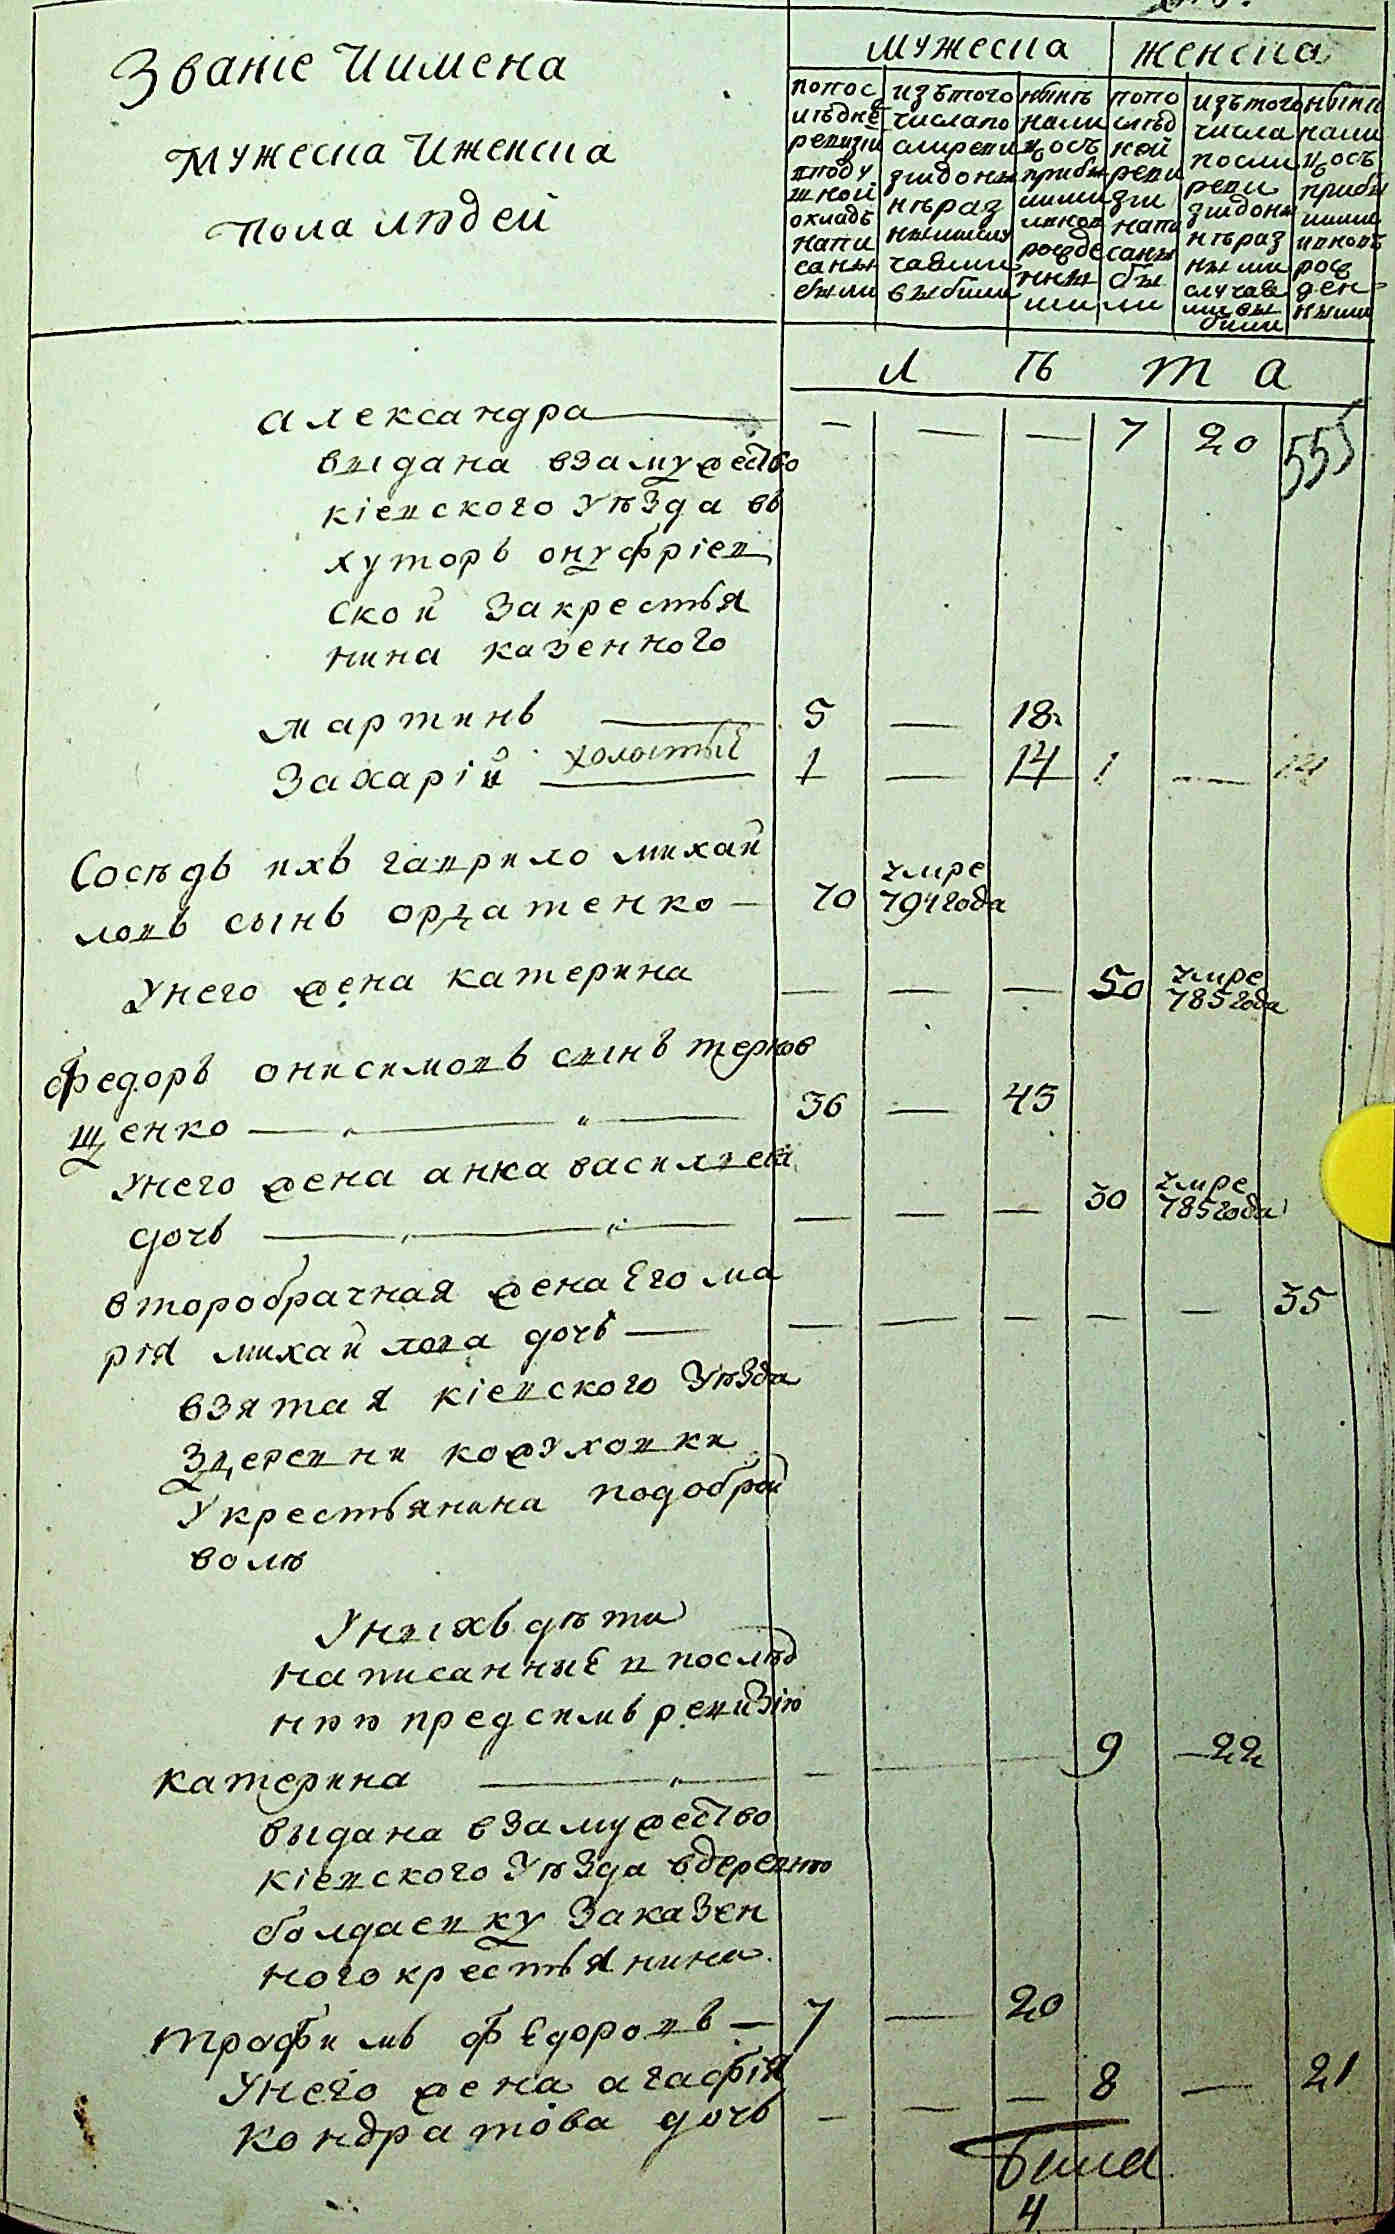 Званіе Иимена
Мужеска Иженска
Пола людей
мужеска женска
попос лѣдне ревизіи вподу шной окладѣ напи саны были
изътого числапо слиреви зіидоны нѣраз
нынѣ нали цосъ прибы лыми рожде нны ми
попо слѣд ней реви зіи напи саны бы ли
изътого числа посли реви зіидоны нѣраз ными случае ми вы были
нынѣ нали цосъ прибы лыми ивновъ рож ден ными
л ѣ т а
александра — — — 7 20
555
выдана взамужество
кіевского Уѣзда въ
хуторъ онуфріев
ской Закрестья
нина казенного
мартинъ 5 — 18
Захарій холостый 1 — 14 1 — 14
Сосѣдъ ихъ гаврило михай
ловъ сынъ ордатенко — 70 умре 794года
Унего жена катерина — — — 50 умре 785года
федоръ онисимовъ сынъ тернов
щенко 36 — 43
Унего жена анна василиева
дочь — — — 30 умре 785года
второбрачная жена Его ма
рія михайлова дочь — — — — — — 35
взятая кіевского Уѣзда
Здеревни кожуховки
Укрестьянина подоброй
волѣ
Унихъ дѣти
написанныЕ в послѣд
нюю предсимъ ревизію
катерина — — — 9 — 22
выдана взамужество
кіевского Уѣзда вдеревню
болдаевку Заказен
ного крестьянина
трофимъ фЕдоровъ — 7 — 20
Унего жена агафія
кондратова дочь — — — 8 — 21
4